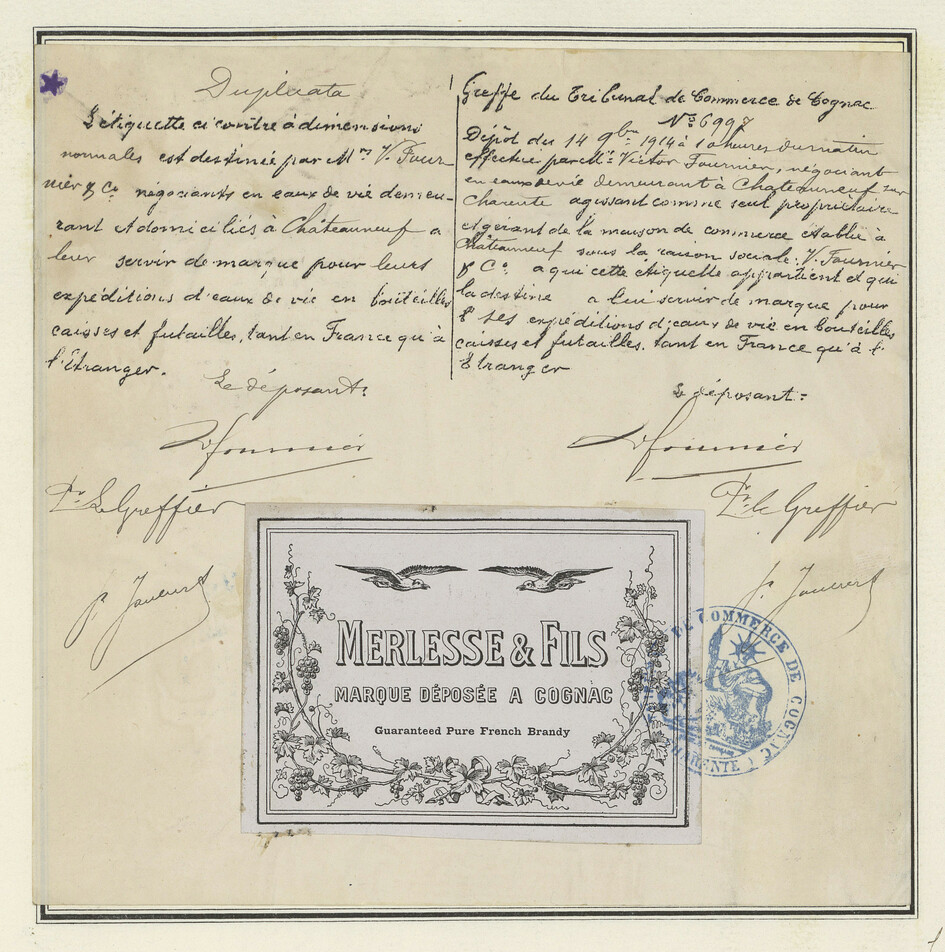 Duplicata
L'étiquette ci contre à dimensions
normales est destinée par Mrs V. Four-
nier & Co négociants en eaux de vie demeu-
rant et domiciliés à Châteauneuf a
leur servir de marque pour leurs
expéditions d'eaux de vie en bouteilles
caisses et futailles, tant en France qu'à
l'étranger.
Le déposant:
V. Fournier
Pr Le Greffier
Greffe du Tribunal de Commerce de Cognac
No 6997
Dépôt du 14 9bre 1914 à 10 heures du matin
effectué par Mr Victor Fournier, négociant
en eaux de vie demeurant à Chateauneuf sur
Charente agissant comme seul propriétaire
et gérant de la maison de commerce établie à
Châteauneuf sous la raison sociale: V. Fournier
& Co a qui cette étiquette appartient et qui
la destine a lui servir de marque pour
ses expéditions d'eaux de vie en bouteilles
caisses et futailles. tant en France qu'à l'
Etranger
Le déposant:
V. Fournier
Pr le Greffier
MERLESSE & FILS
MARQUE DÉPOSÉE A COGNAC
Guaranteed Pure French Brandy
DE COMMERCE DE COGNAC
CHARENTE